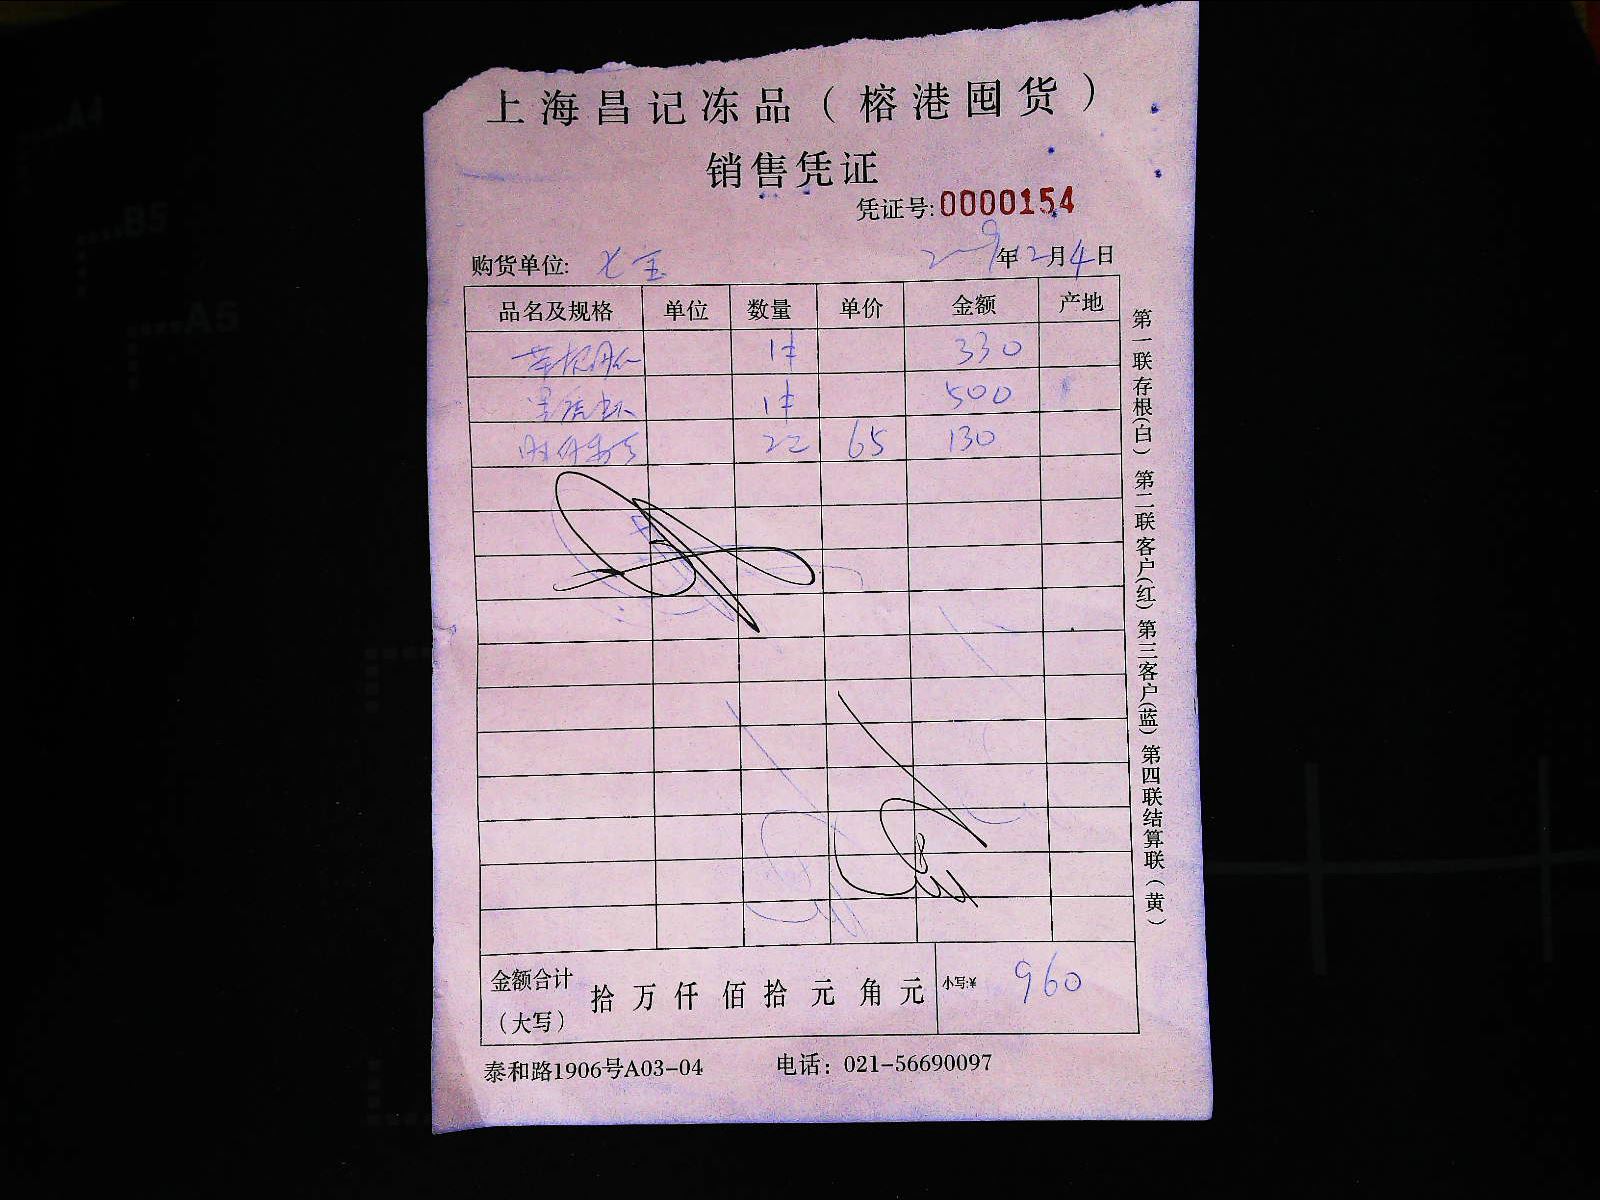 上海昌记冻品（榕港囤货）
销售凭证
凭证号:0000154
购货单位: 七宝 年2月4日
品名及规格 单位 数量 单价 金额 产地
1件 330
黑虎虾 1件 500
22 65 130
金额合计（大写） 拾 万 仟 佰 拾 元 角 元 小写:¥ 960
泰和路1906号A03-04 电话：021-56690097
第一联存根(白) 第二联客户(红) 第三客户(蓝) 第四联结算联(黄)
A4
B5
A5